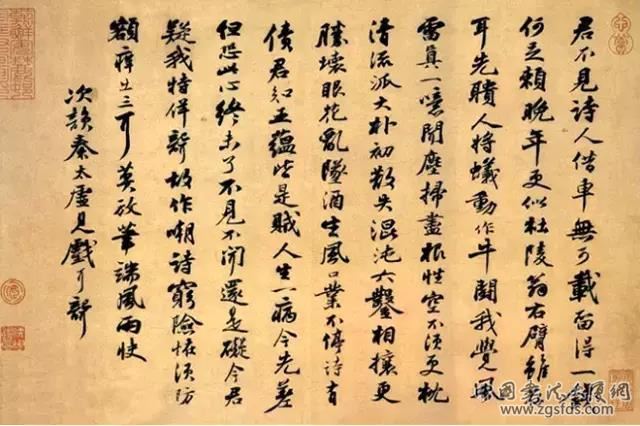 君不見詩人借車無可載留得一錢
何足賴晚年更似杜陵翁右臂雖存
耳先聵人將蟻動作牛鬪我覺風
雷真一噫聞塵掃盡根性空不須更枕
清流派大朴初散失混沌六鑿相攘更
勝壞眼花亂墜酒生風口業不停詩有
債君知五蘊皆是賊人生一病今先差
但恐此心終未了不見不聞還是礙今君
疑我特佯聾故作嘲詩窮險怪須防
額痒出三耳莫放筆端風雨快
次韻秦太虛見戲耳聾
www.zgsfds.com